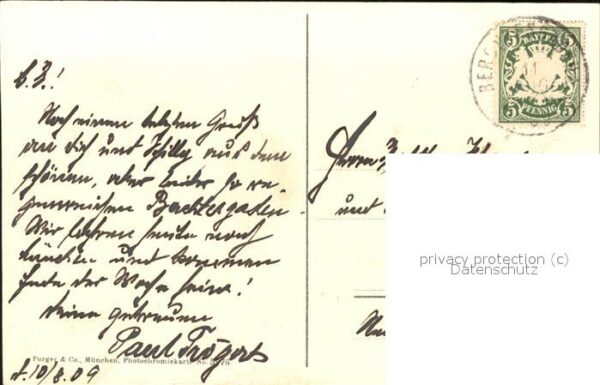 L. Z.!
Noch einen letzten Gruß
an Dich und Willy aus dem
schönen, aber leider so re-
genreichen Berchtesgaden.
Wir fahren heute nach
München und kommen
Ende der Woche heim!
Deine getreuen
Paul Trögers
d. 10/8.09
Purger & Co., München, Photochromiekarte No.
BAYERN
5 5
5 5
PFENNIG
BERCH
Herrn
und
privacy protection (c)
Datenschutz